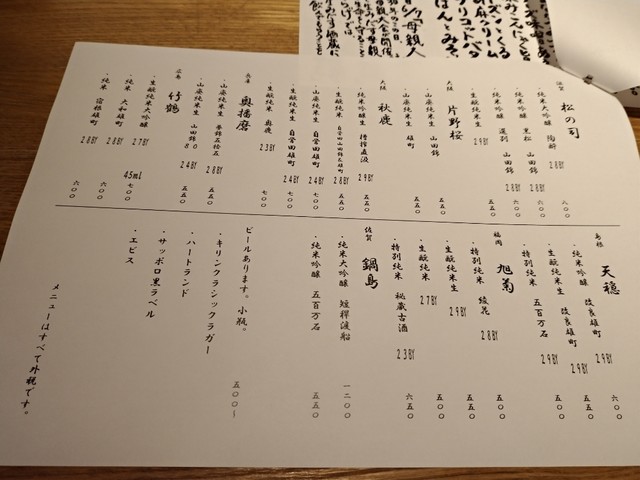 滋賀
松の司
・純米大吟醸 陶酔 28BY 八〇〇
・純米吟醸生 黒松 山田錦 28BY 六〇〇
・純米生 選別 山田錦 28BY 六〇〇
・生酛純米生 29BY 五五〇
大阪
片野桜
・山廃純米生 山田錦 五五〇
・山廃純米生 雄町 五五〇
大阪
秋鹿
・純米吟醸生 槽搾直汲 29BY 五五〇
・生酛純米生 自営田山田錦&雄町 28BY 五五〇
・山廃純米生 自営田雄町 24BY 七〇〇
・生酛純米生 自営田雄町 24BY 七〇〇
兵庫
奥播磨
・生酛純米 奥鹿 23BY 七〇〇
・山廃純米生 夢錦五拾五 28BY 五五〇
・山廃純米生 山田錦 80 24BY 五五〇
広島
竹鶴
・生酛純米大吟醸 27BY 45ml 七〇〇
・純米 大和雄町 28BY 六〇〇
・純米 宿根雄町 28BY 六〇〇
島根
天穏
・純米吟醸 改良雄町 29BY 六〇〇
・生酛純米 改良雄町 29BY 五五〇
・特別純米 五百万石 29BY 五〇〇
福岡
旭菊
・特別純米 綾花 28BY 五〇〇
・生酛純米 29BY 五五〇
・生酛純米 27BY 五〇〇
・特別純米 秘蔵古酒 23BY 六五〇
佐賀
鍋島
・純米大吟醸 短稈渡船 一二〇〇
・純米吟醸 五百万石 五五〇
ビールあります。小瓶。 五〇〇ー
・キリンクラシックラガー
・ハートランド
・サッポロ黒ラベル
・エビス
メニューはすべて外税です。